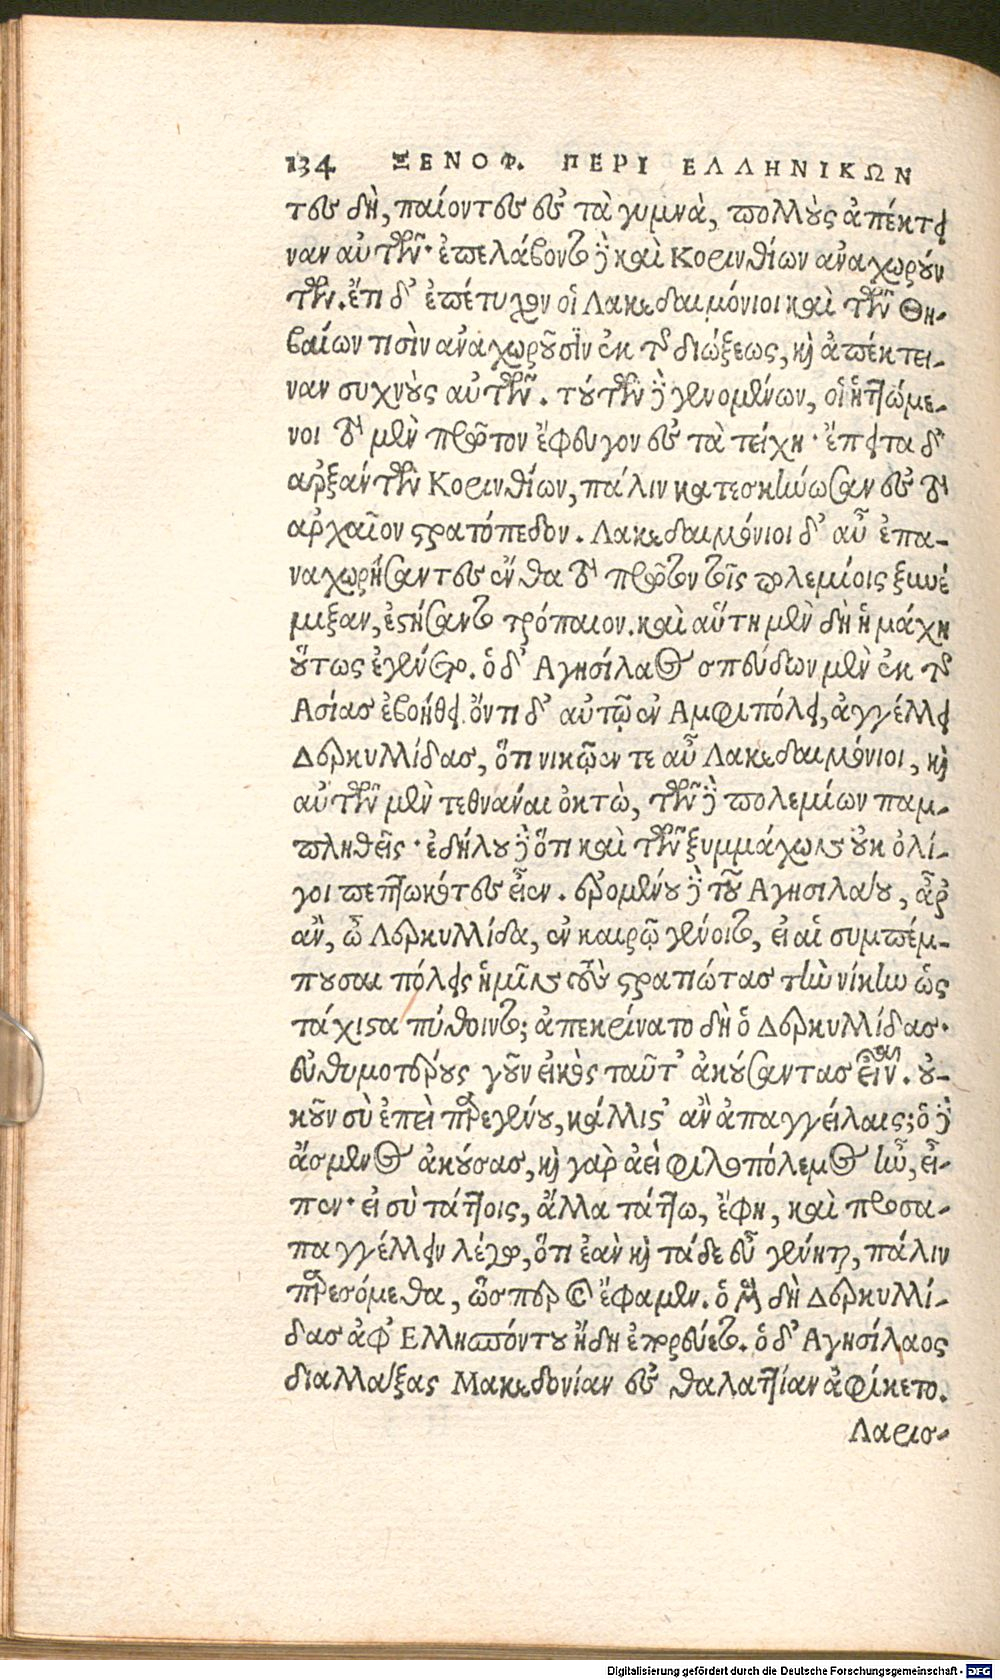 134 ΞΕΝΟΦ. ΠΕΡΙ ΕΛΛΗΝΙΚΩΝ
τες δὴ, παίοντες εἰς τὰ γυμνὰ, πολλοὺς ἀπέκτει
ναν αὐτῶν· ἐπελάβοντο δὲ καὶ Κορινθίων ἀναχωρούν
των. ἔτι δ' ἐπέτυχον οἱ Λακεδαιμόνιοι καὶ τῶν Θη-
βαίων τισὶν ἀναχωροῦσιν ἐκ τῆς διώξεως, καὶ ἀπέκτει-
ναν συχνοὺς αὐτῶν. τούτων δὲ γενομένων, οἱ ἡττώμε-
νοι τὸ μὲν πρῶτον ἔφευγον εἰς τὰ τείχη· ἔπειτα δ'
ἀρξάντων Κορινθίων, πάλιν κατεσκήνωσαν εἰς τὸ
ἀρχαῖον στρατόπεδον. Λακεδαιμόνιοι δ' αὖ ἐπα-
ναχωρήσαντες ἔνθα τὸ πρῶτον τοῖς πολεμίοις ξυνέ
μιξαν, ἐστήσαντο τρόπαιον. καὶ αὕτη μὲν δὴ ἡ μάχη
οὕτως ἐγένετο. ὁ δ' Αγησίλαος σπεύδων μὲν ἐκ τῆς
Ασίας ἐβοήθει. ὄντι δ' αὐτῷ ἐν Αμφιπόλει, ἀγγέλλει
Δερκυλλίδας, ὅτι νικῷεν τε αὖ Λακεδαιμόνιοι, καὶ
αὐτῶν μὲν τεθνάναι ὀκτὼ, τῶν δὲ πολεμίων παμ-
πληθεῖς· ἐδήλου δὲ ὅτι καὶ τῶν ξυμμάχων οὐκ ὀλί-
γοι πεπτωκότες εἶεν. ἐρομένου δὲ τοῦ Αγησιλάου, ἆρ'
ἂν, ὦ Δερκυλλίδα, ἐν καιρῷ γένοιτο, εἰ αἱ συμπέμ-
πουσαι πόλεις ἡμῖν τοὺς στρατιώτας τὴν νίκην ὡς
τάχιστα πύθοιντο; ἀπεκρίνατο δὴ ὁ Δερκυλλίδας·
εὐθυμοτέρους γοῦν εἰκὸς ταῦτ' ἀκούσαντας εἶναι. οὐ-
κοῦν σὺ ἐπεὶ παρεγένου, κάλλιστ' ἂν ἀπαγγείλαις; ὁ δὲ
ἄσμενος ἀκούσας, καὶ γὰρ ἀεὶ φιλοπόλεμος ἦν, εἶ-
πεν· εἰ σὺ τάττοις, ἄλλα τάττω, ἔφη, καὶ προσα-
παγγέλλειν λέγω, ὅτι ἐὰν καὶ τάδε εὖ γένηται, πάλιν
παρεσόμεθα, ὥσπερ καὶ ἔφαμεν. ὁ μὲν δὴ Δερκυλλί-
δας ἀφ' Ελλησπόντου ἤδη ἐπορεύετο. ὁ δ' Αγησίλαος
διαλλάξας Μακεδονίαν εἰς θαλαττίαν ἀφίκετο.
Λαρισ-
Digitalisierung gefördert durch die Deutsche Forschungsgemeinschaft - DFG